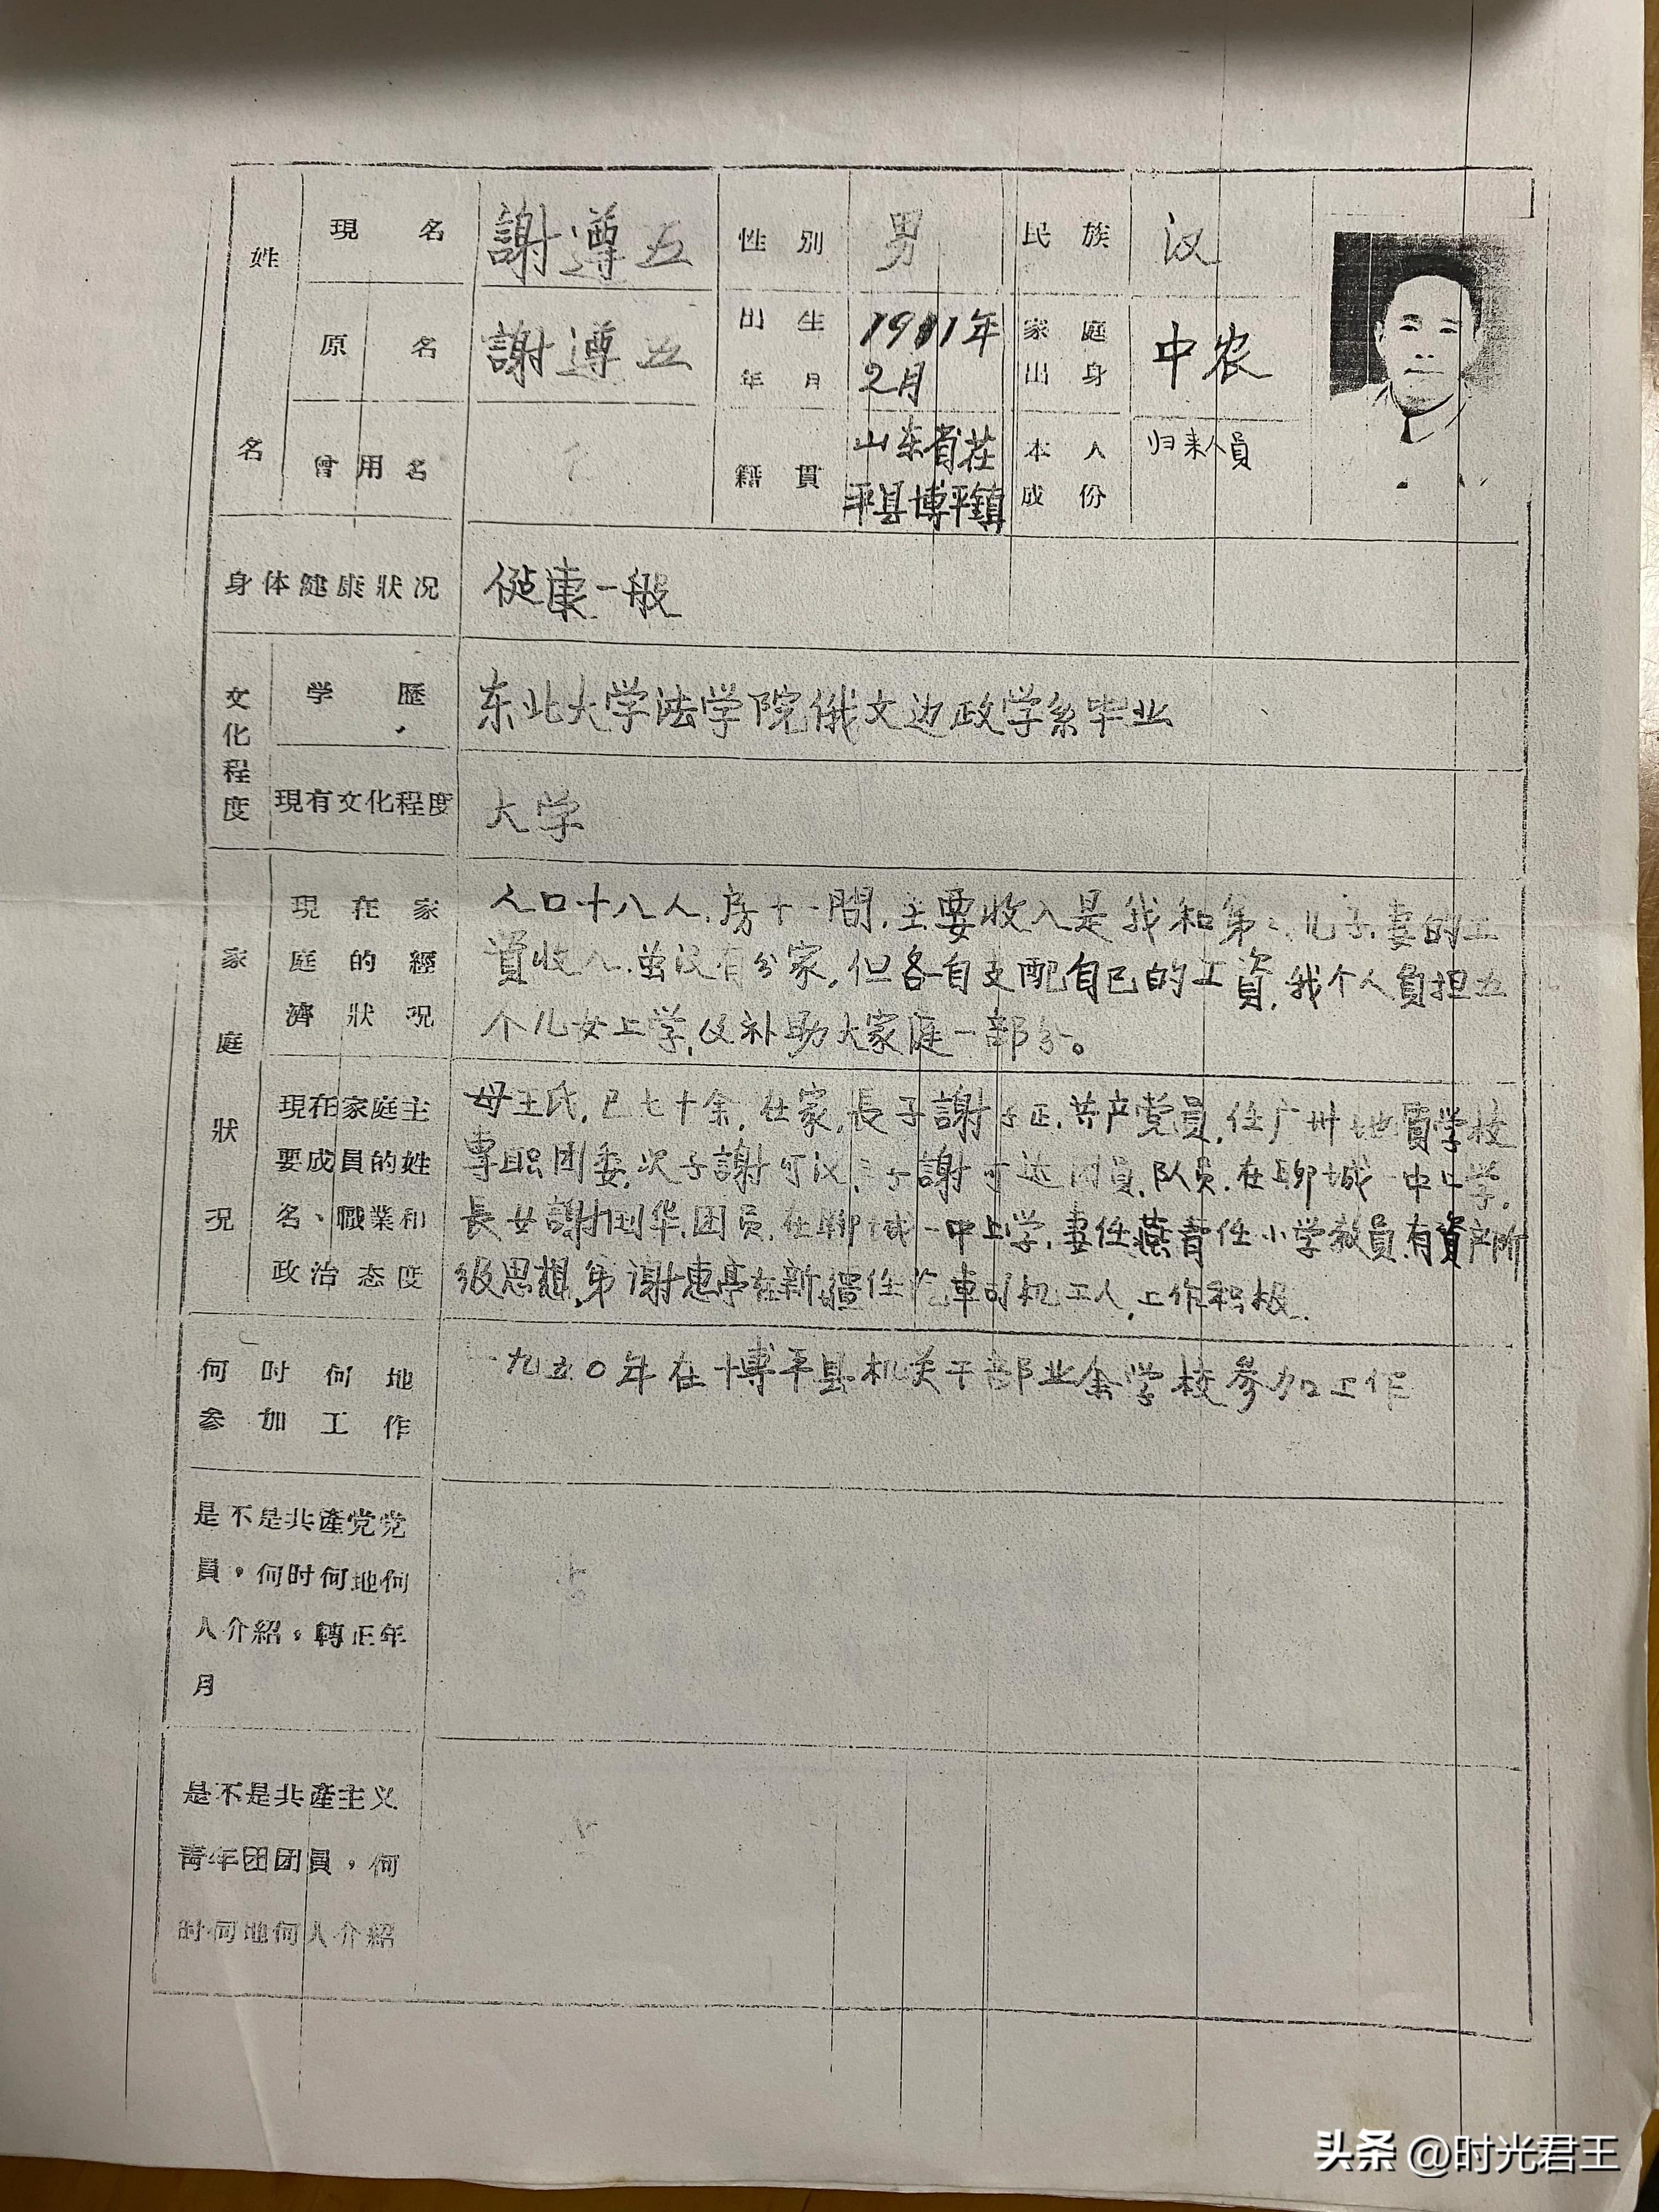 姓名
現名 謝遵五 性別 男 民族 汉
原名 謝遵五 出生年月 1911年2月 家庭出身 中农
曾用名 籍貫 山东省茌平县博平鎮 本人成份 归来人員
身体健康狀况 健康一般
文化程度
学歷 东北大学法学院俄文边政学系毕业
現有文化程度 大学
家庭狀况
現在家庭的經濟狀况
人口十八人,房十一間,主要收入是我和第二儿子,妻的工
資收入,虽没有分家,但各自支配自己的工資,我个人負担五
个儿女上学,及补助大家庭一部分。
現在家庭主要成員的姓名、職業和政治态度
母王氏,已七十余,在家,長子謝 正,共产党員,任广州地質学校
專职团委,次子謝可汉,三子謝可达团員,队員,在聊城一中上学,
長女謝 华,团員,在聊城一中上学,妻任燕青任小学教員,有資产阶
级思想,第謝惠亭在新疆任汽車司机工人,工作积极.
何时何地参加工作
一九五〇年在博平县机关干部业余学校参加工作
是不是共產党党
員,何时何地何
人介紹,轉正年
月
是不是共產主义
青年团团員,何
时何地何人介紹
头条 @时光君王